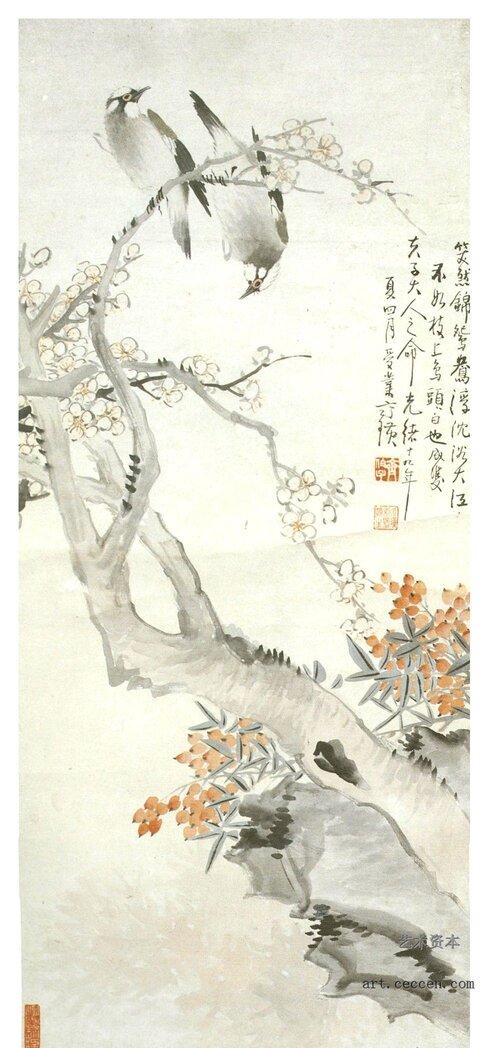 笑然錦鴛鴦浮沈浴大江
不如枝上鳥頭白也成雙
夫子大人之命光緒十九年
夏四月受業方璜
艺术资本
art.ceccen.com